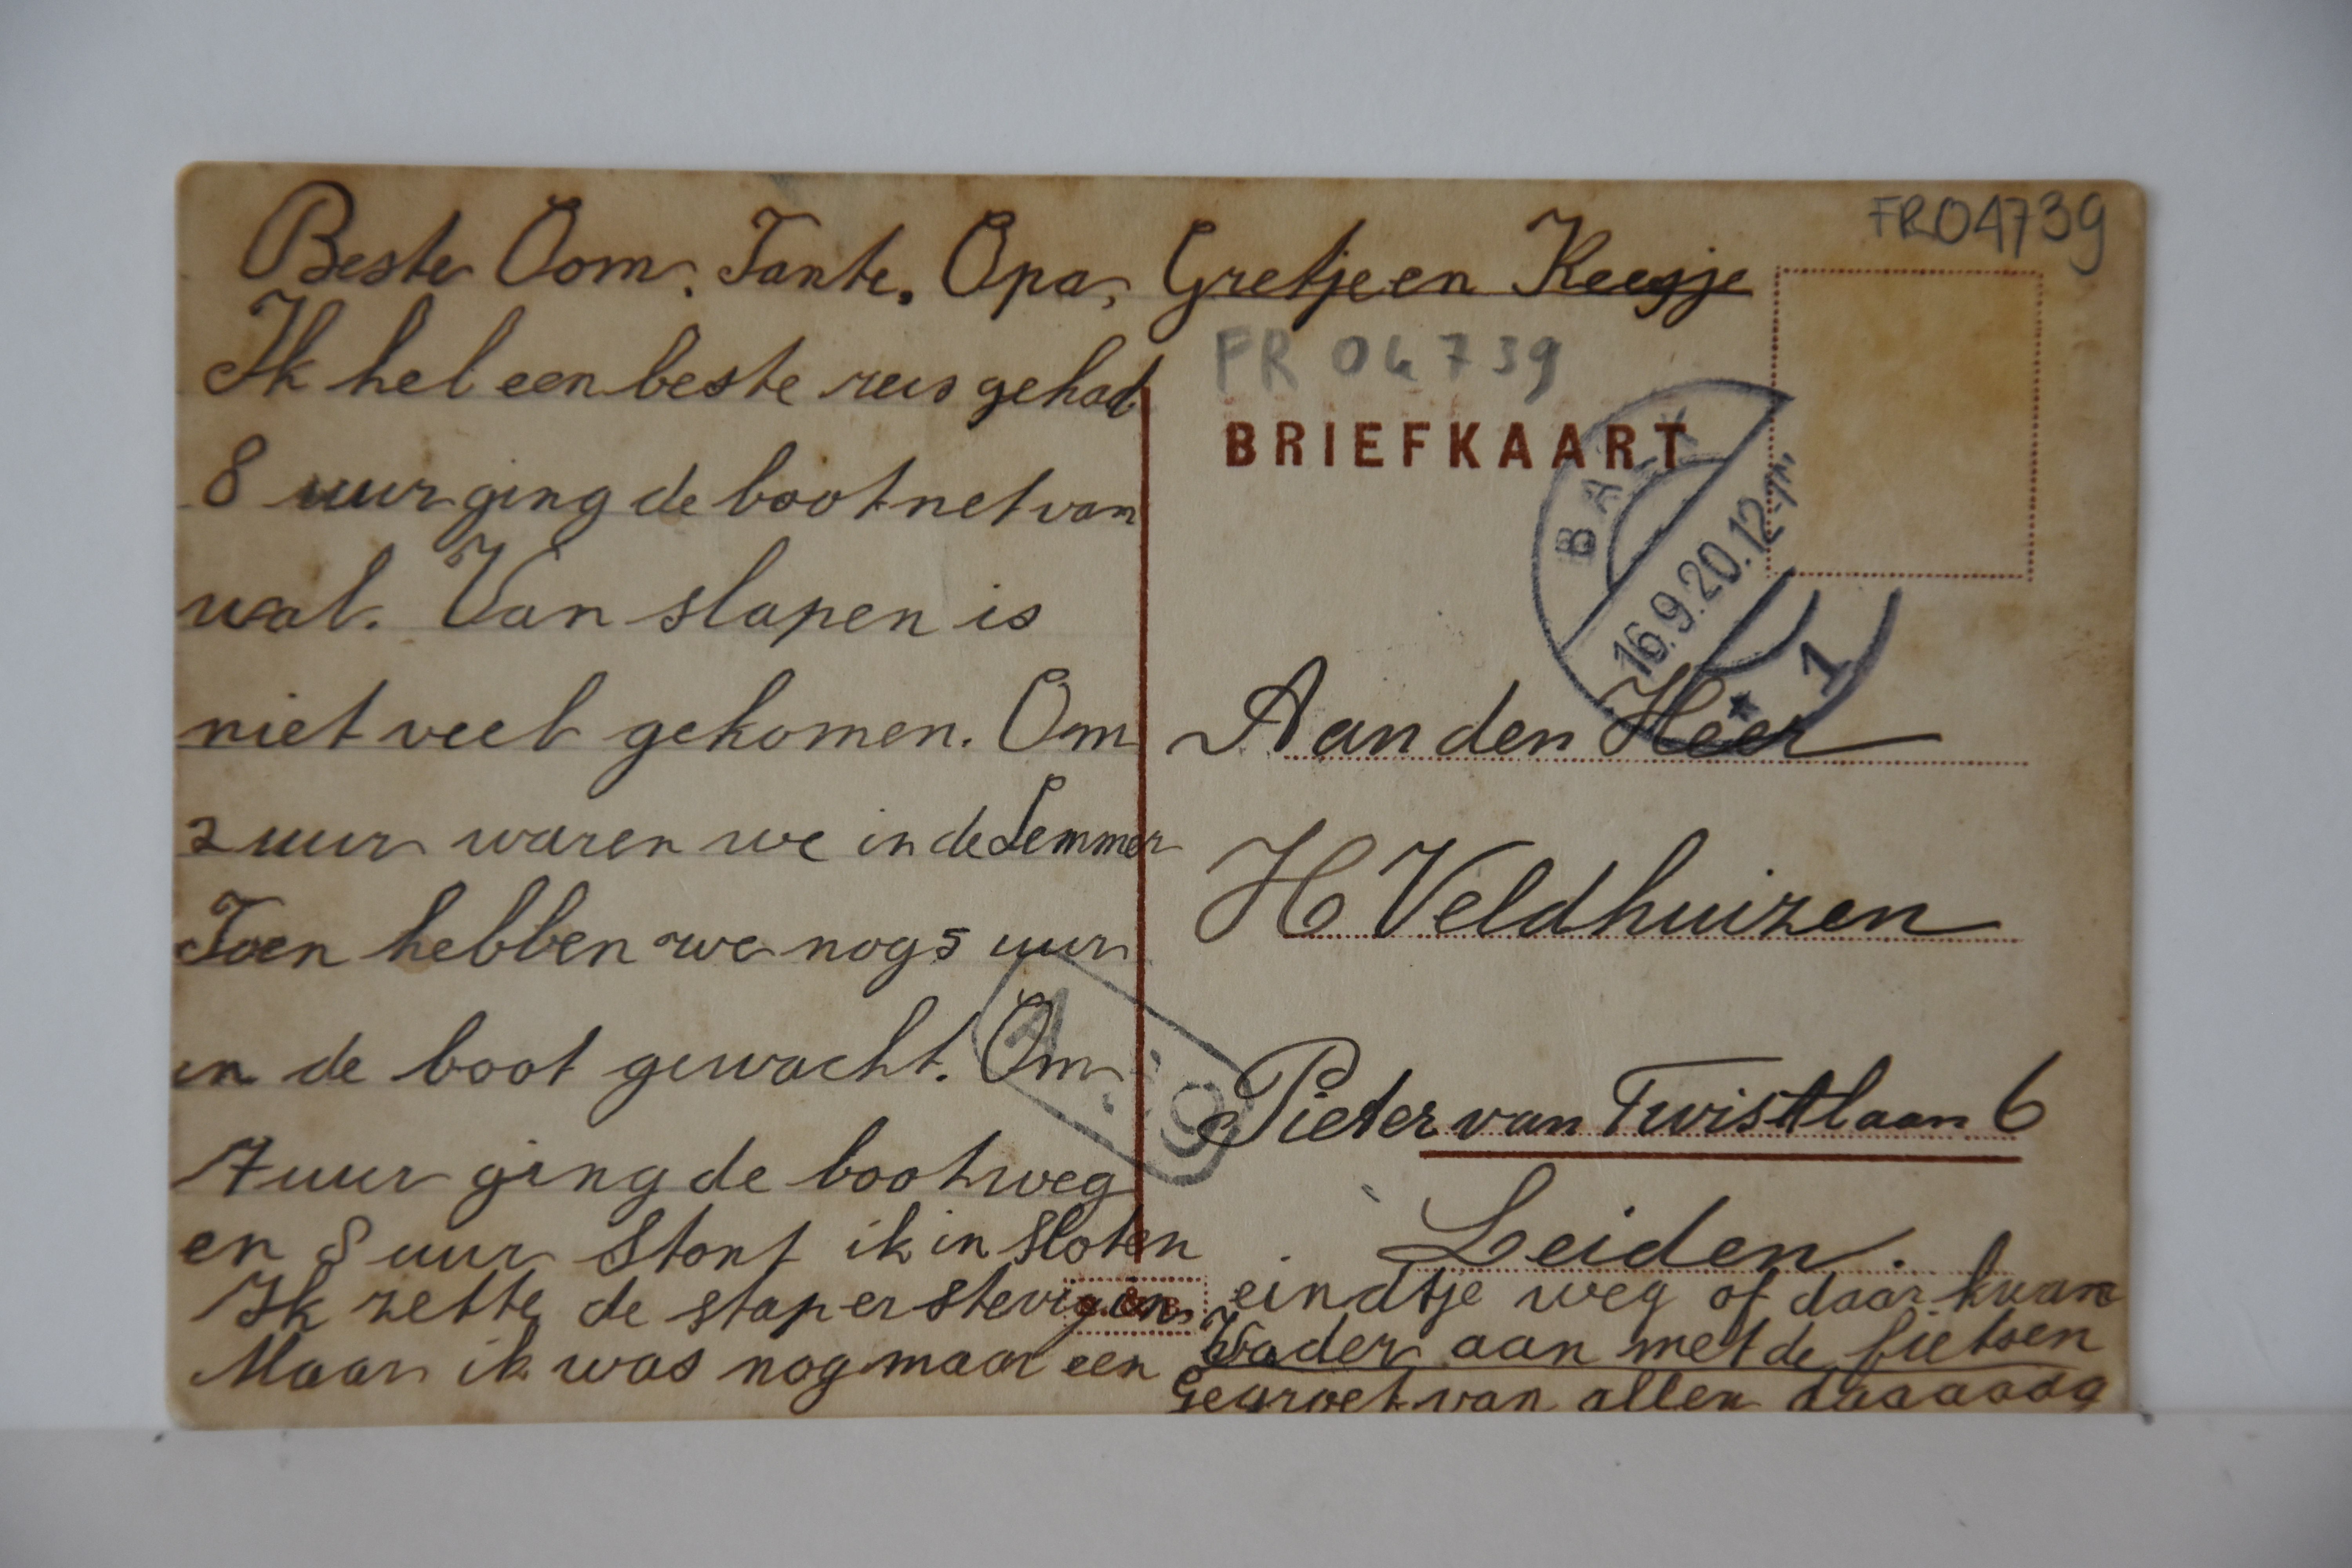 FR04739
Beste Oom. Tante. Opa, Gretje en Keesje
Ik heb een beste reis gehad
8 uur ging de boot net van
wal. Van slapen is
niet veel gekomen. Om
2 uur waren we in de Lemmer
Toen hebben we nog 5 uur
in de boot gewacht. Om
7 uur ging de boot weg
en 8 uur stont ik in Sloten
Ik zette de stap er stevig in
Maar ik was nog maar een
eindtje weg of daar kwam
Vader aan met de fietsen
Gegroet van allen daaaaag
FR 04739
BRIEFKAART
BALK
16.9.20.12-1
1
Aan den Heer
H Veldhuizen
Pieter van Twistlaan 6
Leiden.